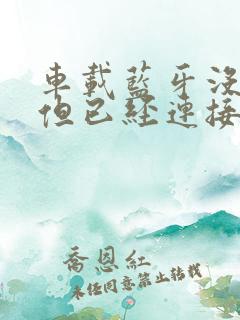 車載藍牙沒
但已經連接
喬恩紅
未經同意禁止轉載